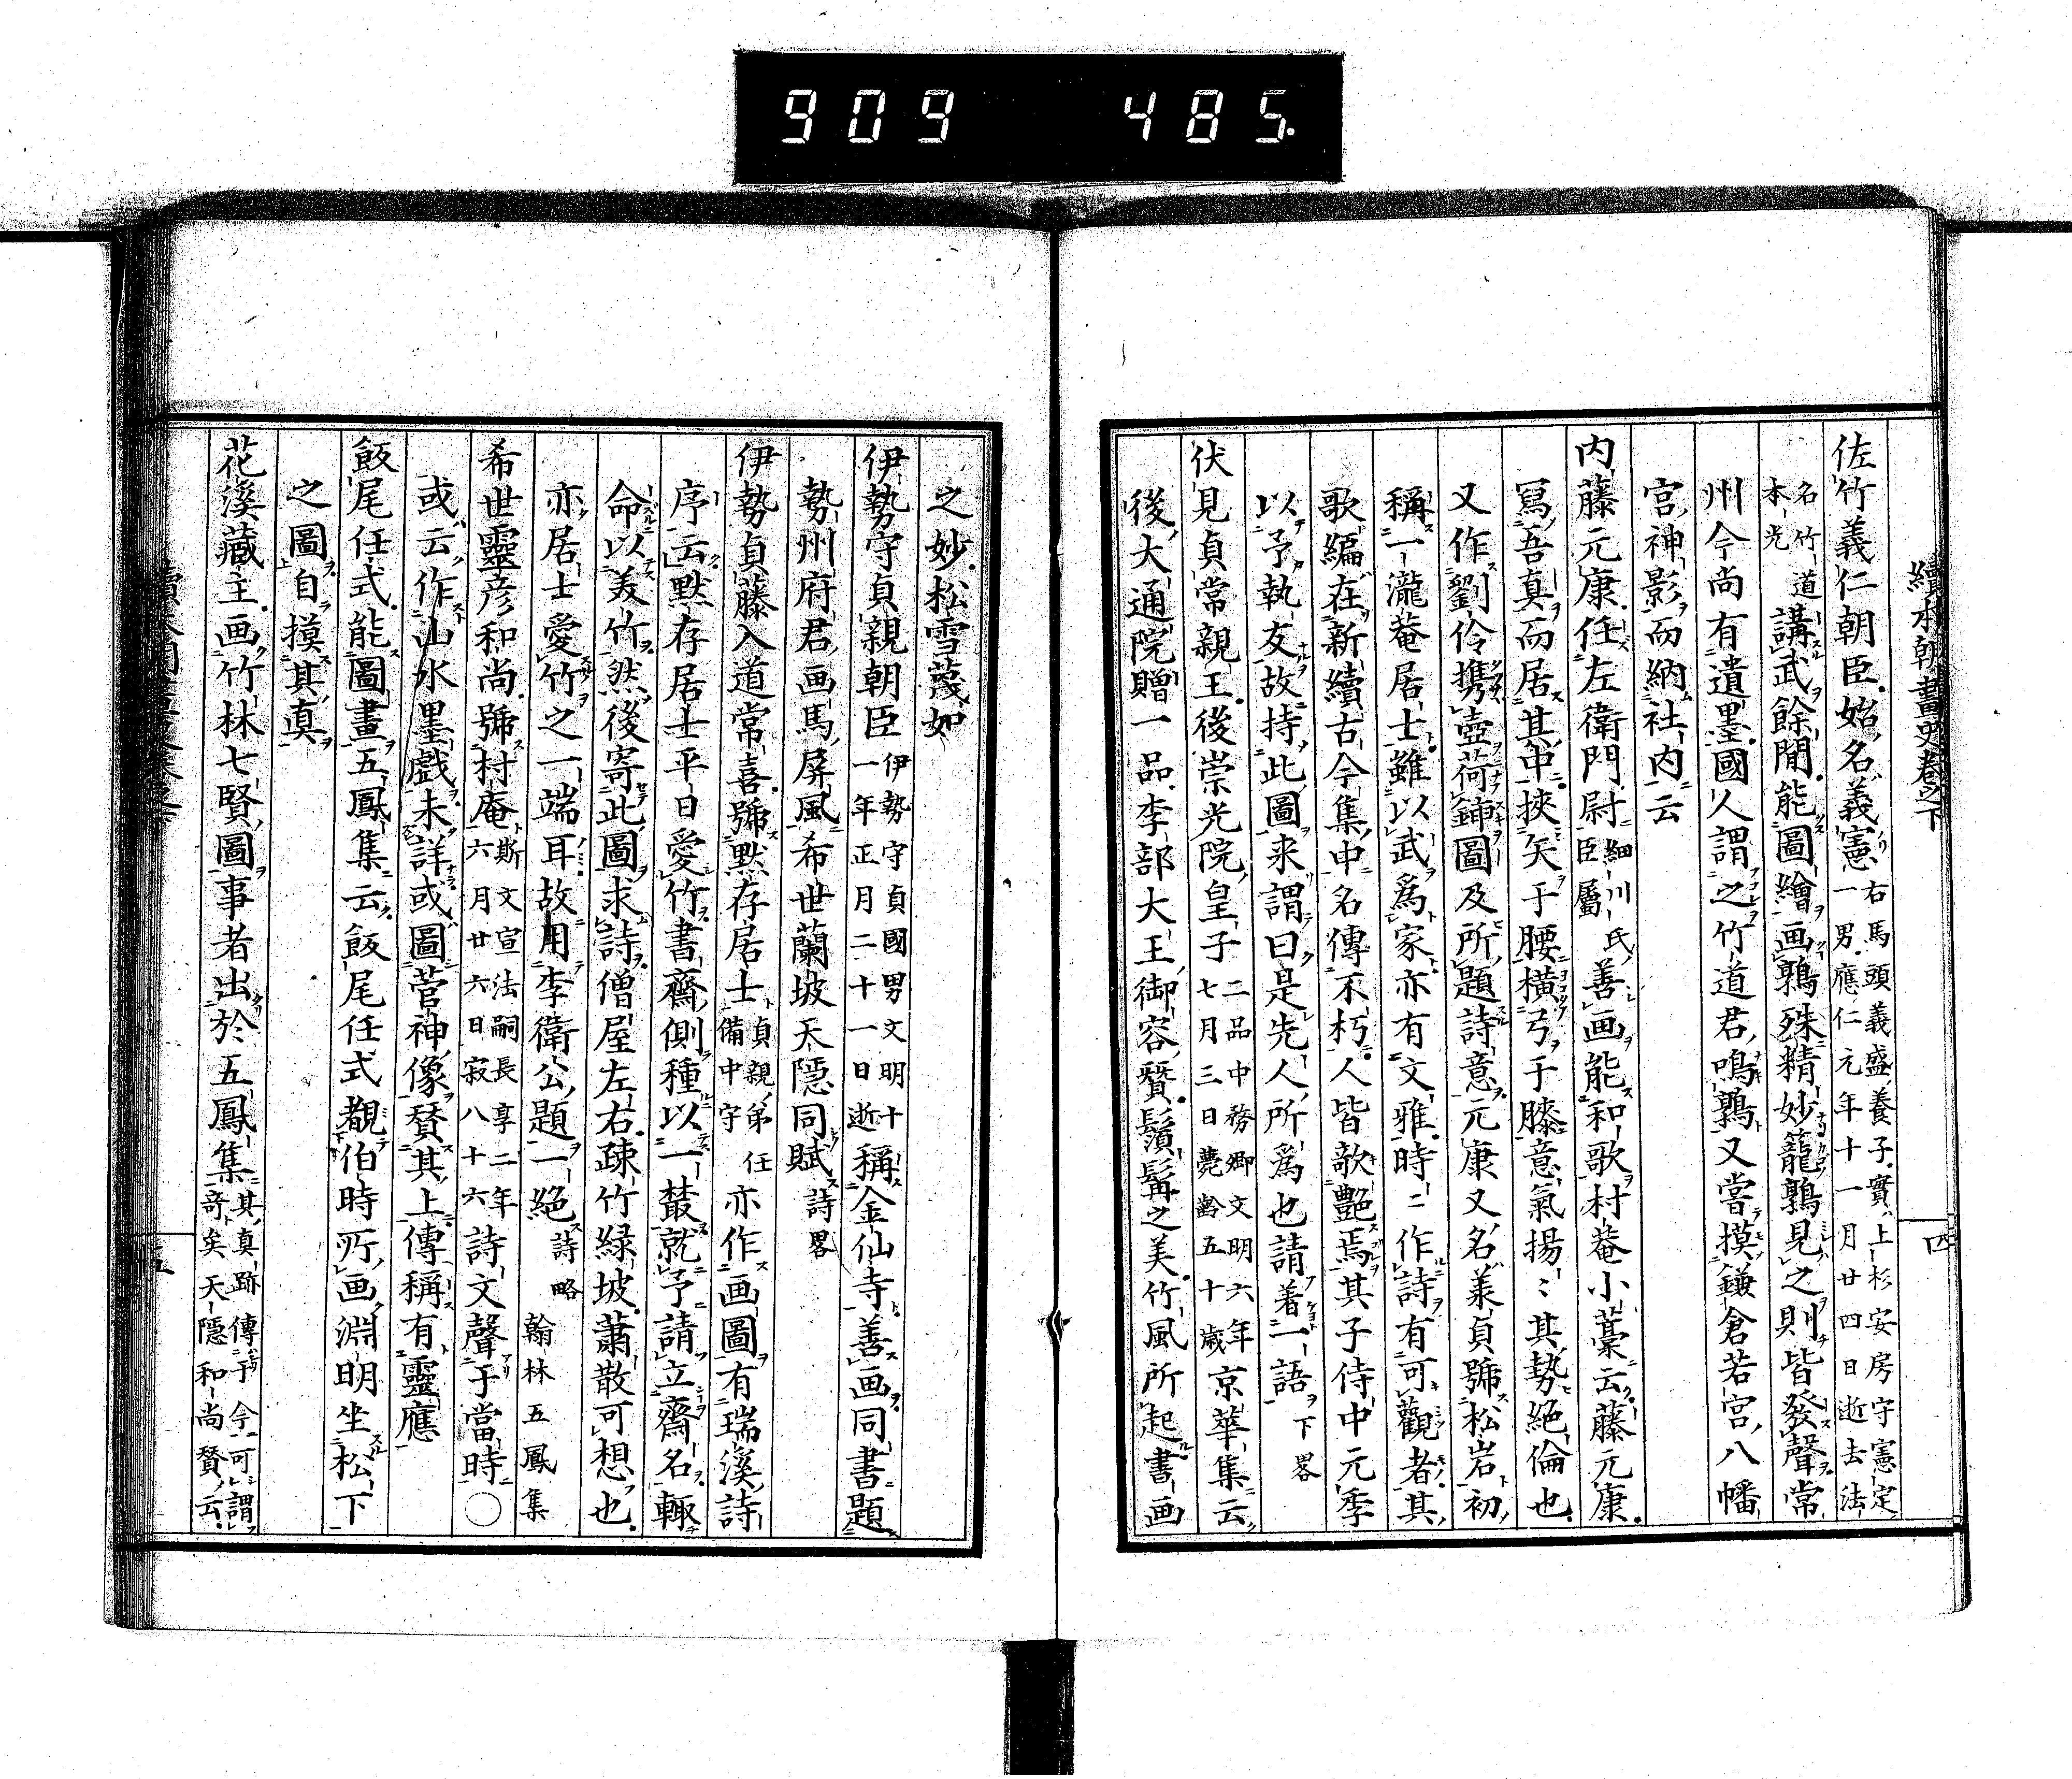 909 485.
續本朝畫史卷之下
四
佐竹義仁朝臣始名義憲右馬頭義盛養子實上杉安房守憲定一男應仁元年十一月廿四日逝去法
名竹道本光講武餘間能圖繪画鶉殊精妙籠鶉見之則皆發聲常
州今尚有遺墨國人謂之竹道君鳴鶉又當摸鎌倉若宮八幡
宮神影而納社内云
内藤元康任左衛門尉細川氏臣屬善画能和歌村菴小藁云藤元康
冩吾真而居其中挾矢于腰横弓于膝意氣揚〻其勢絕倫也
又作劉伶携壺荷鍤圖及所題詩意元康又名義貞號松岩初
稱一瀧菴居士雖以武爲家亦有文雅時〻作詩有可觀者其
歌編在新續古今集中名傳不朽人皆歆艷焉其子侍中元季
以予執友故持此圖来謂曰是先人所爲也請着一語下畧
伏見貞常親王後崇光院皇子二品中務卿文明六年七月三日薨齡五十歳京華集云
後大通院贈一品李部大王御容賛鬚髯之美竹風所起書画
之妙松雪蔑如
伊勢守貞親朝臣伊勢守貞國男文明十一年正月二十一日逝稱金仙寺善画同書題
勢州府君画馬屏風希世蘭坡天隱同賦詩畧
伊勢貞藤入道常喜號默存居士貞親弟任備中守亦作画圖有瑞溪詩
序云默存居士平日愛竹書齋側種以一叢就予請立齋名輙
命以美竹然後寄此圖求詩僧屋左右疎竹緑坡蕭散可想也
亦居士愛竹之一端耳故用李衛公題一絕詩略翰林五鳳集
希世靈彦和尚號村庵斯文宣法嗣長享二年六月廿六日寂八十六詩文聲于當時〇
或云作山水墨戲未詳或圖菅神像賛其上傳稱有靈應
飯尾任式能圖畫五鳳集云飯尾任式觀伯時所画淵明坐松下
之圖自摸其真
花溪藏主画竹林七賢圖事者出於五鳳集其真跡傳于今可謂奇矣天隱和尚賛云
五